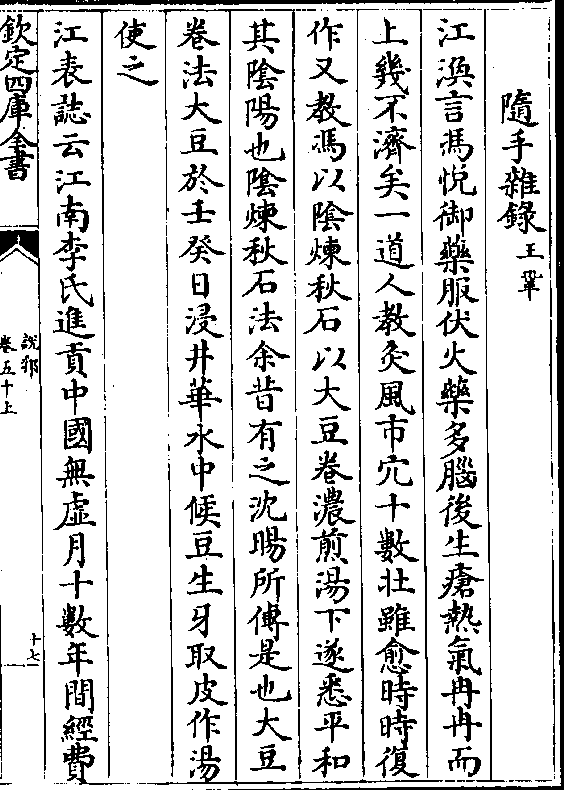 隨手雜錄王鞏
江渙言馮悅御藥服伏火藥多腦後生瘡熱氣冉冉而
上幾不濟矣一道人教灸風市穴十數壯雖愈時時復
作又教馮以陰煉秋石以大豆卷濃煎湯下遂悉平和
其陰陽也陰煉秋石法余昔有之沈晹所傳是也大豆
卷法大豆於壬癸日浸井華水中候豆生牙取皮作湯
使之
江表誌云江南李氏進貢中國無虛月十數年間經費
欽定四庫全書
說郛
卷五十上
十七